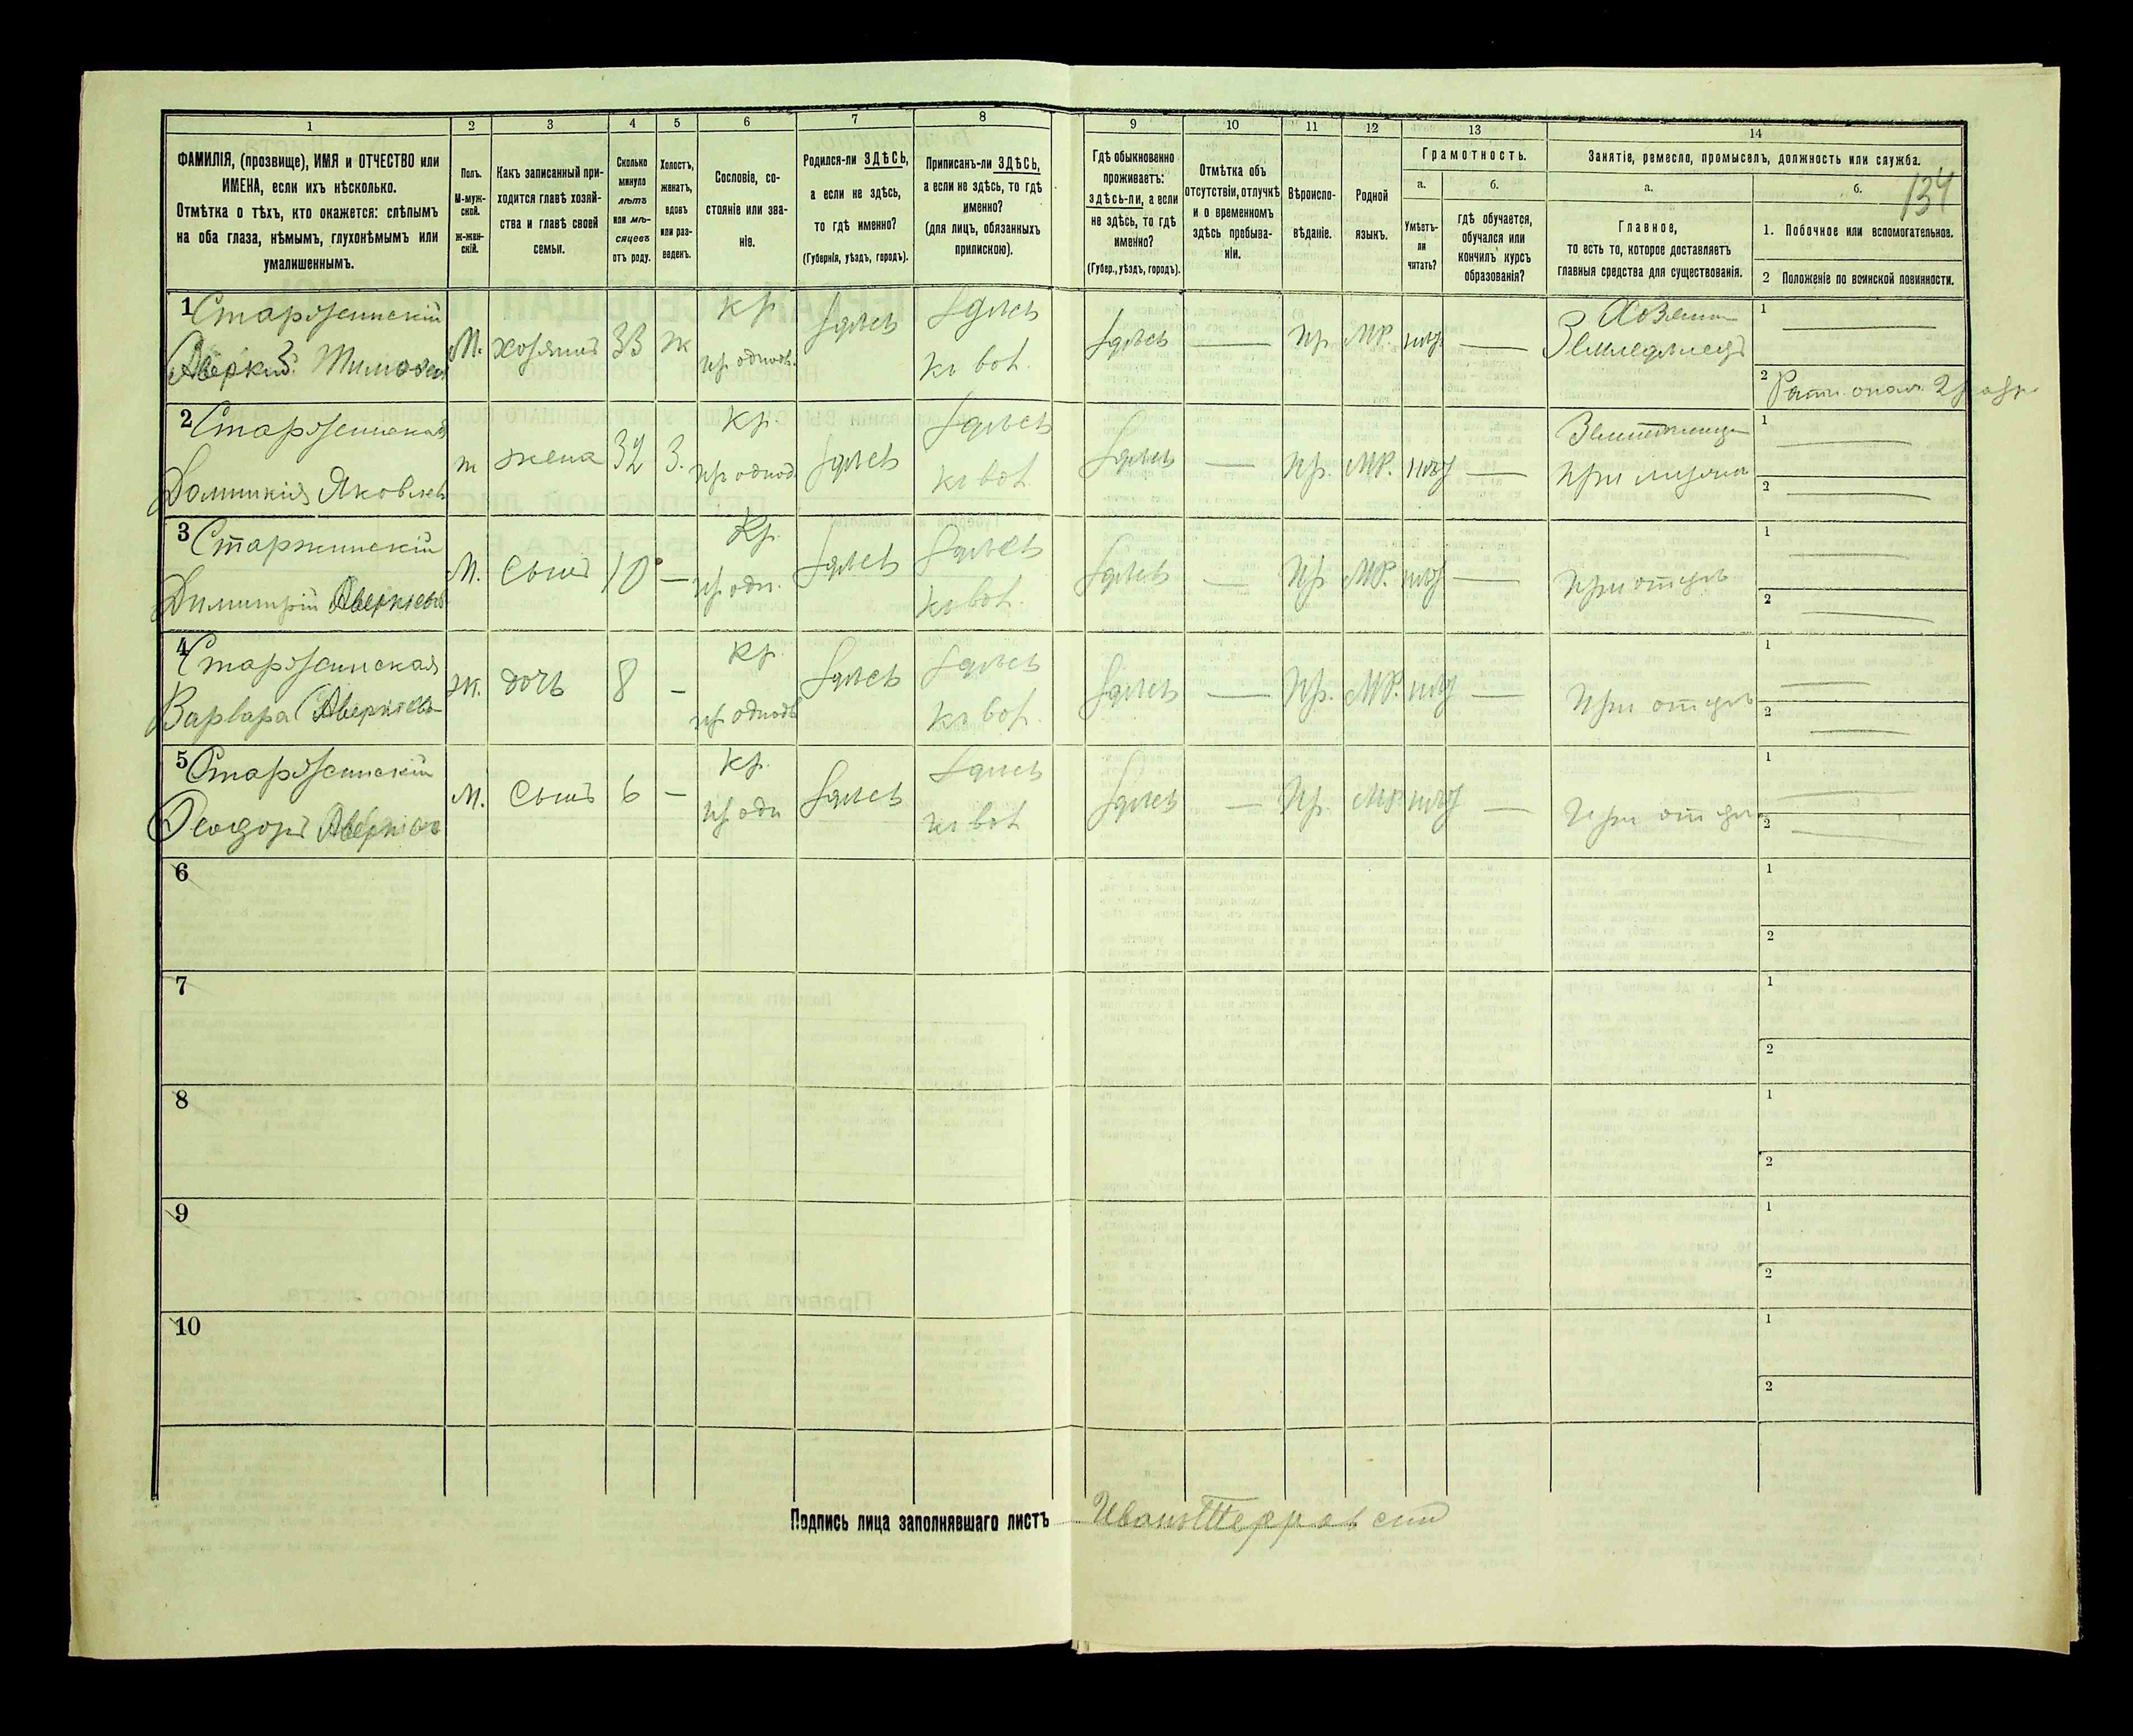 1
2
3
4
5
6
7
8
9
10
11
12
13
14
ФАМИЛІЯ, (прозвище), ИМЯ и ОТЧЕСТВО или
ИМЕНА, если ихъ нѣсколько.
Отмѣтка о тѣхъ, кто окажется: слѣпымъ
на оба глаза, нѣмымъ, глухонѣмымъ или
умалишеннымъ.
Полъ.
М-муж-
ской.
ж-жен-
скій.
Какъ записанный при-
ходится главѣ хозяй-
ства и главѣ своей
семьи.
Сколько
минуло
лѣтъ
или мѣ-
сяцевъ
отъ роду.
Холостъ,
женатъ,
вдовъ
или раз-
веденъ.
Сословіе, со-
стояніе или зва-
ніе.
Родился-ли ЗДѢСЬ,
а если не здѣсь,
то гдѣ именно?
(Губернія, уѣздъ, городъ).
Приписанъ-ли ЗДѢСЬ,
а если не здѣсь, то гдѣ
именно?
(для лицъ, обязанныхъ
припискою).
Гдѣ обыкновенно
проживаетъ:
здѣсь-ли, а если
не здѣсь, то гдѣ
именно?
(Губер., уѣздъ, городъ).
Отмѣтка объ
отсутствіи, отлучкѣ
и о временномъ
здѣсь пребыва-
ніи.
Вѣроиспо-
вѣданіе.
Родной
языкъ.
Грамотность.
а.
б.
Умѣетъ-
ли
читать?
гдѣ обучается,
обучался или
кончилъ курсъ
образованія?
Занятіе, ремесло, промыселъ, должность или служба.
а.
б.
134
Главное,
то есть то, которое доставляетъ
главныя средства для существованія.
1. Побочное или вспомогательное.
2 Положеніе по воинской повинности.
1 Старженскій
Аверкій Тимофеев
М. хозяинъ 33 ж
кр.
здѣсь
здѣсь
здѣсь — Пр. МР. нѣт —
Хозяин
Земледѣлецъ
1 —
2
2 Старженская
Домникія Яковлев
ж жена 32 З.
кр.
здѣсь
здѣсь
здѣсь — Пр. МР. нѣт —
при мужѣ
1 —
2 —
3 Старжинскій
Димитрій Аверкіевъ
М. сынъ 10 —
Кр.
здѣсь
здѣсь
здѣсь — Пр МР. нѣт —
при отцѣ
1 —
2 —
4 Старженская
Варвара Аверкіев
ж. дочь 8 —
кр.
здѣсь
здѣсь
здѣсь — Пр. МР. нѣт —
при отцѣ
1 —
2 —
5 Старженскій
Феодоръ Аверкіев
М. сынъ 6 —
кр.
здѣсь
здѣсь
здѣсь — Пр. МР нѣт —
при отцѣ
1 —
2 —
6
1
2
7
1
2
8
1
2
9
1
2
10
1
2
Подпись лица заполнявшаго листъ Иванъ